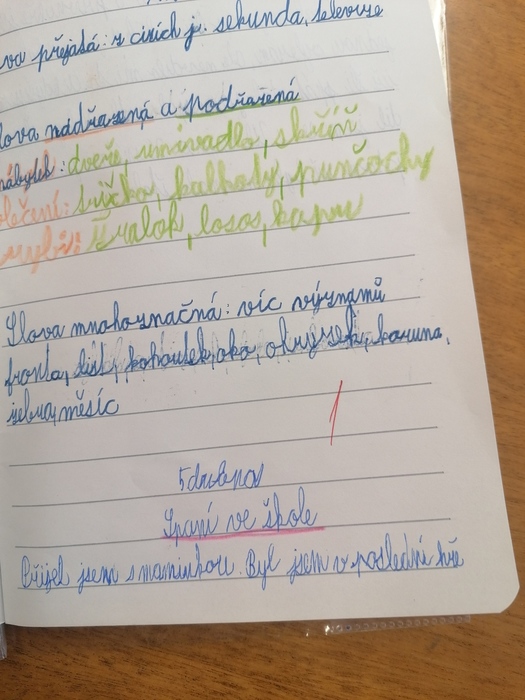 přejatá: z cizích j. sekunda, televize
nadřazená a podřazená
nábytek: dveře, umivadlo, skříň
tričko, kalhoty, punčochy
ryby: žralok, losos, kapr
Slova mnohoznačná: víc významů
fronta, list, kohoutek, oko, koruna,
zebra, měsíc
1
5 dubna
Spaní ve škole
Přijel jsem s maminkou. Byl jsem v poslední hře